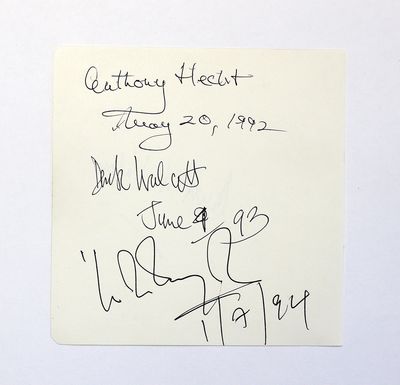 Anthony Hecht
May 20, 1992
Derek Walcott
June 9 93
1/7/94